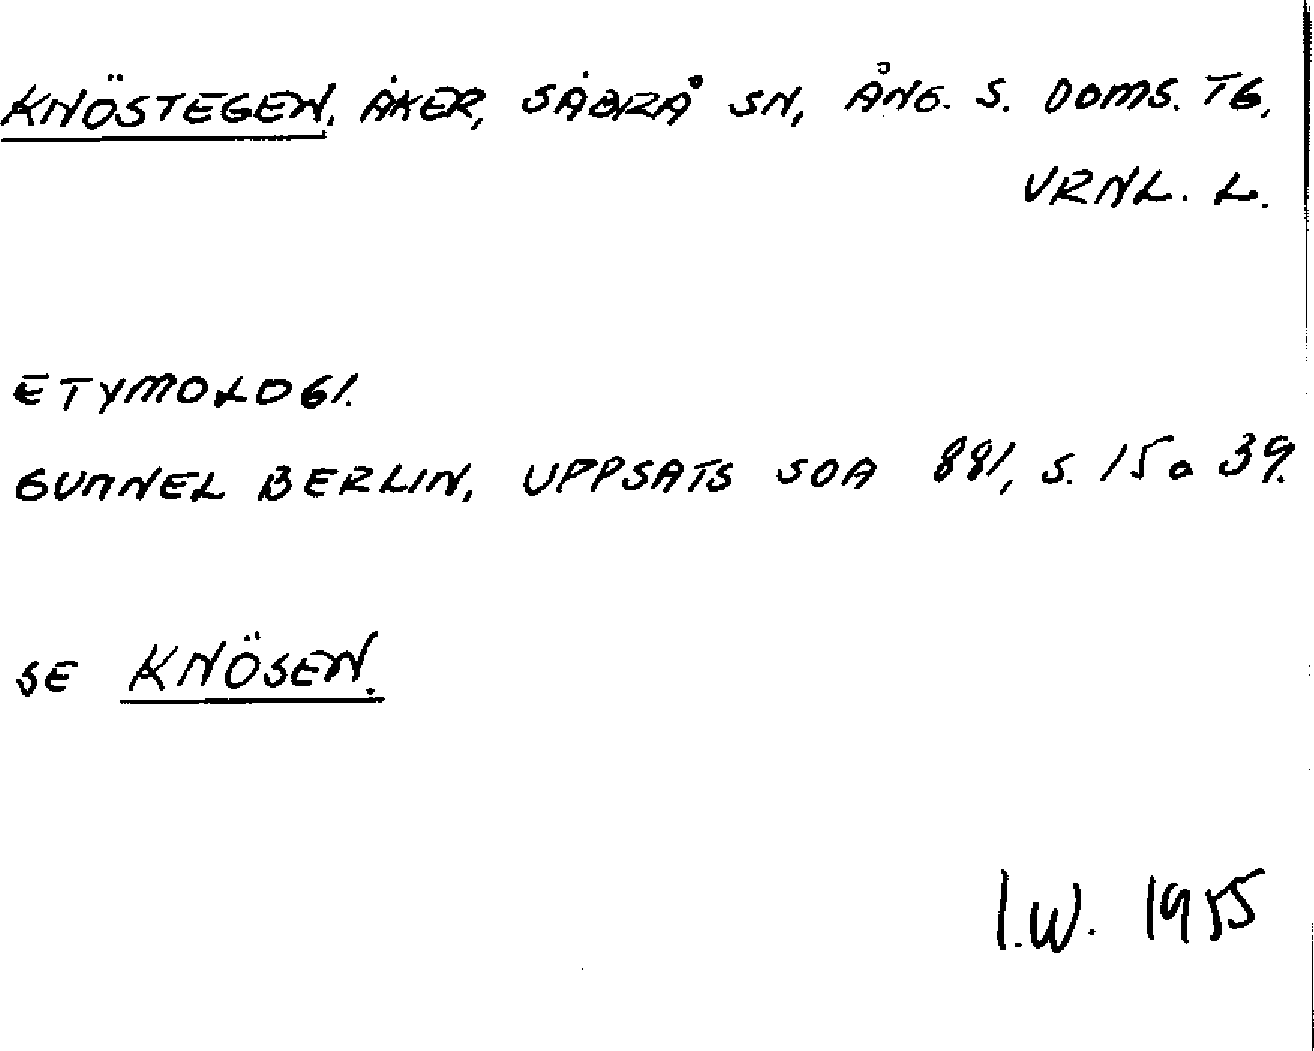 KNÖSTEGEN, ÅKER, SÄBRÅ SN, ÅNG. S. DOMS. TG,
VRNL. L.
ETYMOLOGI.
GUNNEL BERLIN, UPPSATS SOA 881, S. 15 o 39.
SE KNÖSEN.
I.W. 1955